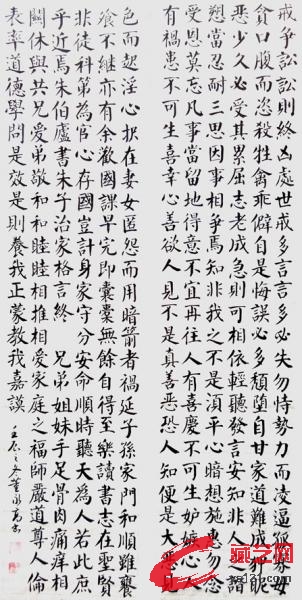 戒争訟訟則終凶處世戒多言言多必失勿恃勢力而凌逼孤寡勿
貪口腹而恣殺牲禽乖僻自是悔誤必多頹墮自甘家道難成狎昵
惡少久必受其累屈志老成急則可相依輕聽發言安知非人之譖
愬當忍耐三思因事相爭焉知非我之不是須平心暗想施惠勿念
受恩莫忘凡事當留餘地得意不宜再往人有喜慶不可生妬嫉心人
有禍患不可生喜幸心善欲人見不是真善惡恐人知便是大惡見
色而起淫心報在妻女匿怨而用暗箭者禍延子孫家門和順雖饔
飧不繼亦有余歡國課早完即囊橐無餘自得至樂讀書志在聖賢
非徒科第為官心存國豈計身家守分安命順時聽天為人若此庶
乎近焉朱伯廬書朱子治家格言終 兄弟姐妹手足骨肉痛癢相
關休與共兄愛弟敬和和睦睦相推相愛家庭之福師嚴道尊人倫
表率道德學問是效是則養我正蒙教我嘉謨
藏艺网